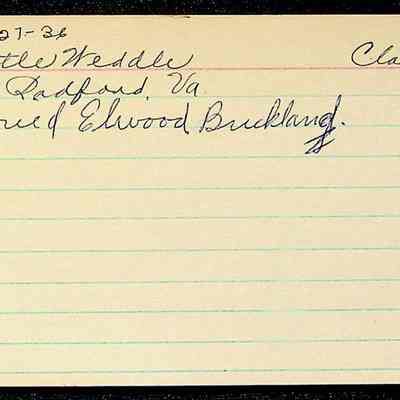 27-36
ttle Weddle Cla
Radford, Va.
ried Elwood Buckland.